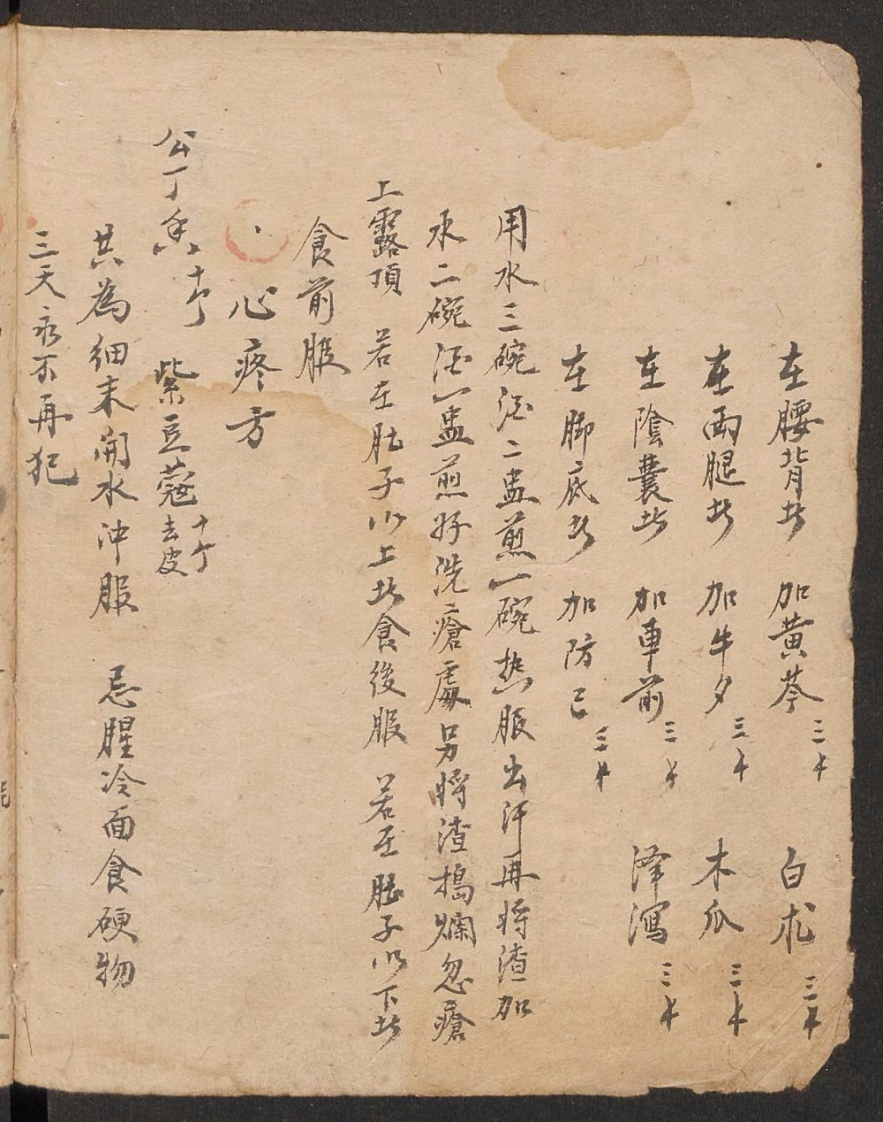 在腰背者 加黃芩三千 白朮三千
在兩腿者 加牛夕三千 木瓜三千
在陰囊者 加車前三千 澤瀉三千
在脚底者 加防己三千
用水三碗酒二盅煎一碗热服出汗再将渣加
水二碗酒一盅煎好洗瘡處另將渣搗爛忽瘡
上露頂 若在肚子以上者食後服 若在肚子以下者
食前服
心疼方
公丁香十个 紫豆蔻十个去皮
共為细末開水沖服 忌腥冷面食硬物
三天永不再犯